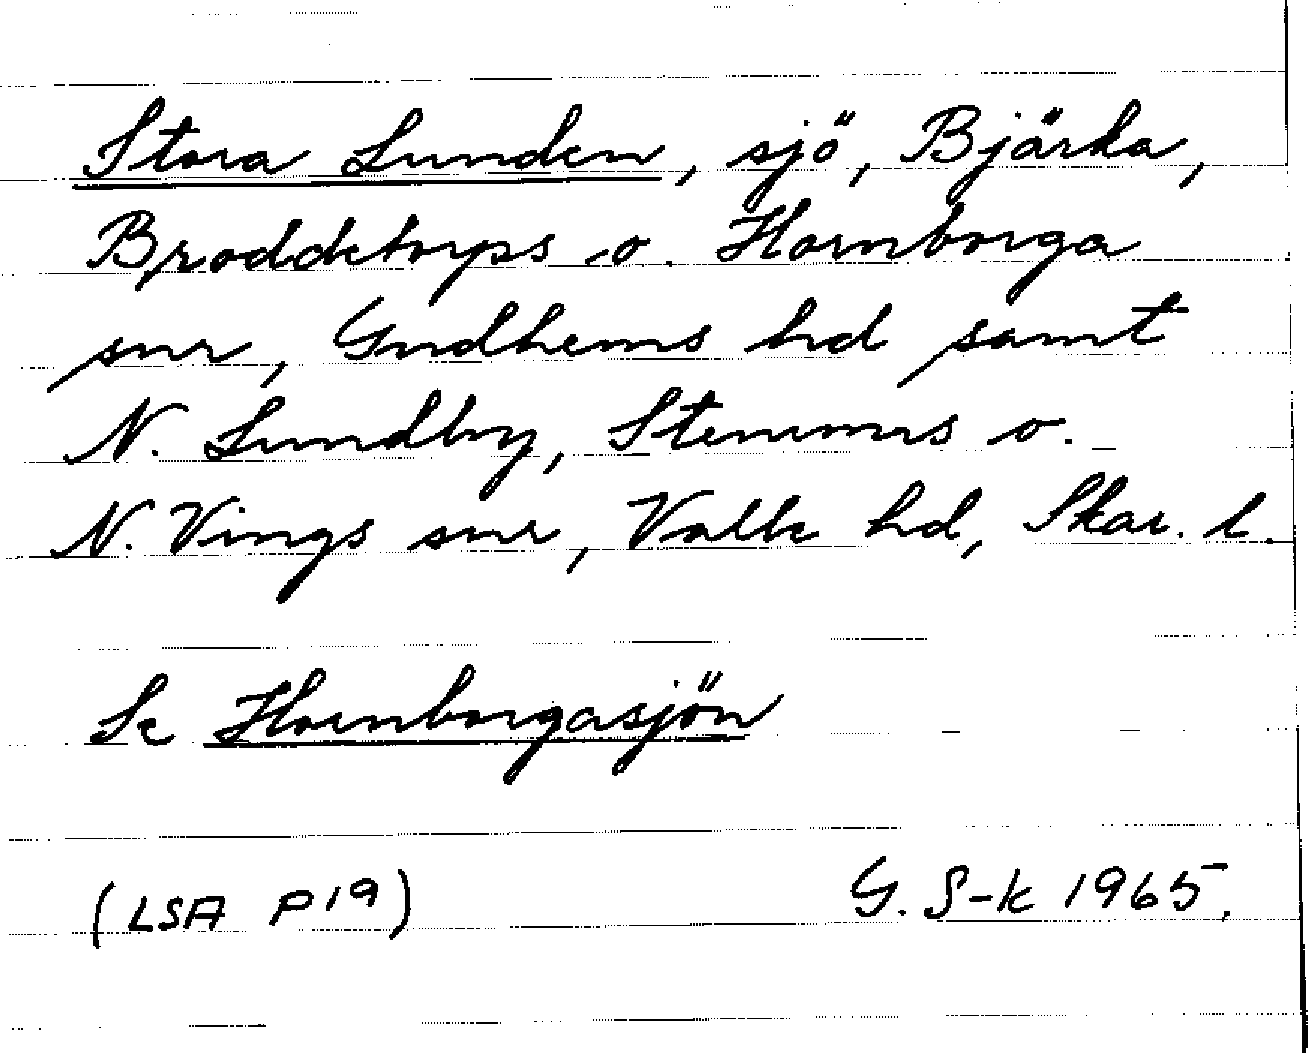 Stora Lunden, sjö, Bjärka,
Broddetorps o. Hornborga
snr, Gudhems hd samt
N. Lundby, Stenums o.
N. Vings snr, Valle hd, Skar. l.
Se Hornborgasjön
(LSA P19) G. S-k 1965.